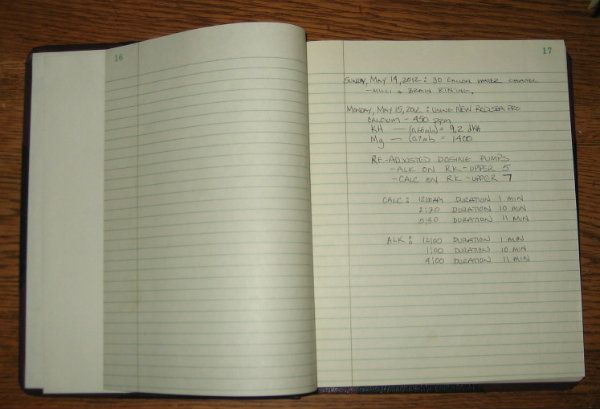 16
17
SUNDAY, MAY 14, 2012: 30 GALLON WATER CHANGE
- MILLI &
MONDAY, MAY 15, 2012: USING NEW RED SEA PRO
CALCIUM - 450 ppm
KH — = 9.2 dKH
Mg — = 1400
RE-ADJUSTED DOSING PUMPS
- ALK ON RK - UPPER 5
- CALC ON RK - UPPER 7
CALC: DURATION 1 MIN
2:30 DURATION 10 MIN
5:30 DURATION 11 MIN
ALK: 12:00 DURATION 1 MIN
1:00 DURATION 10 MIN
4:00 DURATION 11 MIN